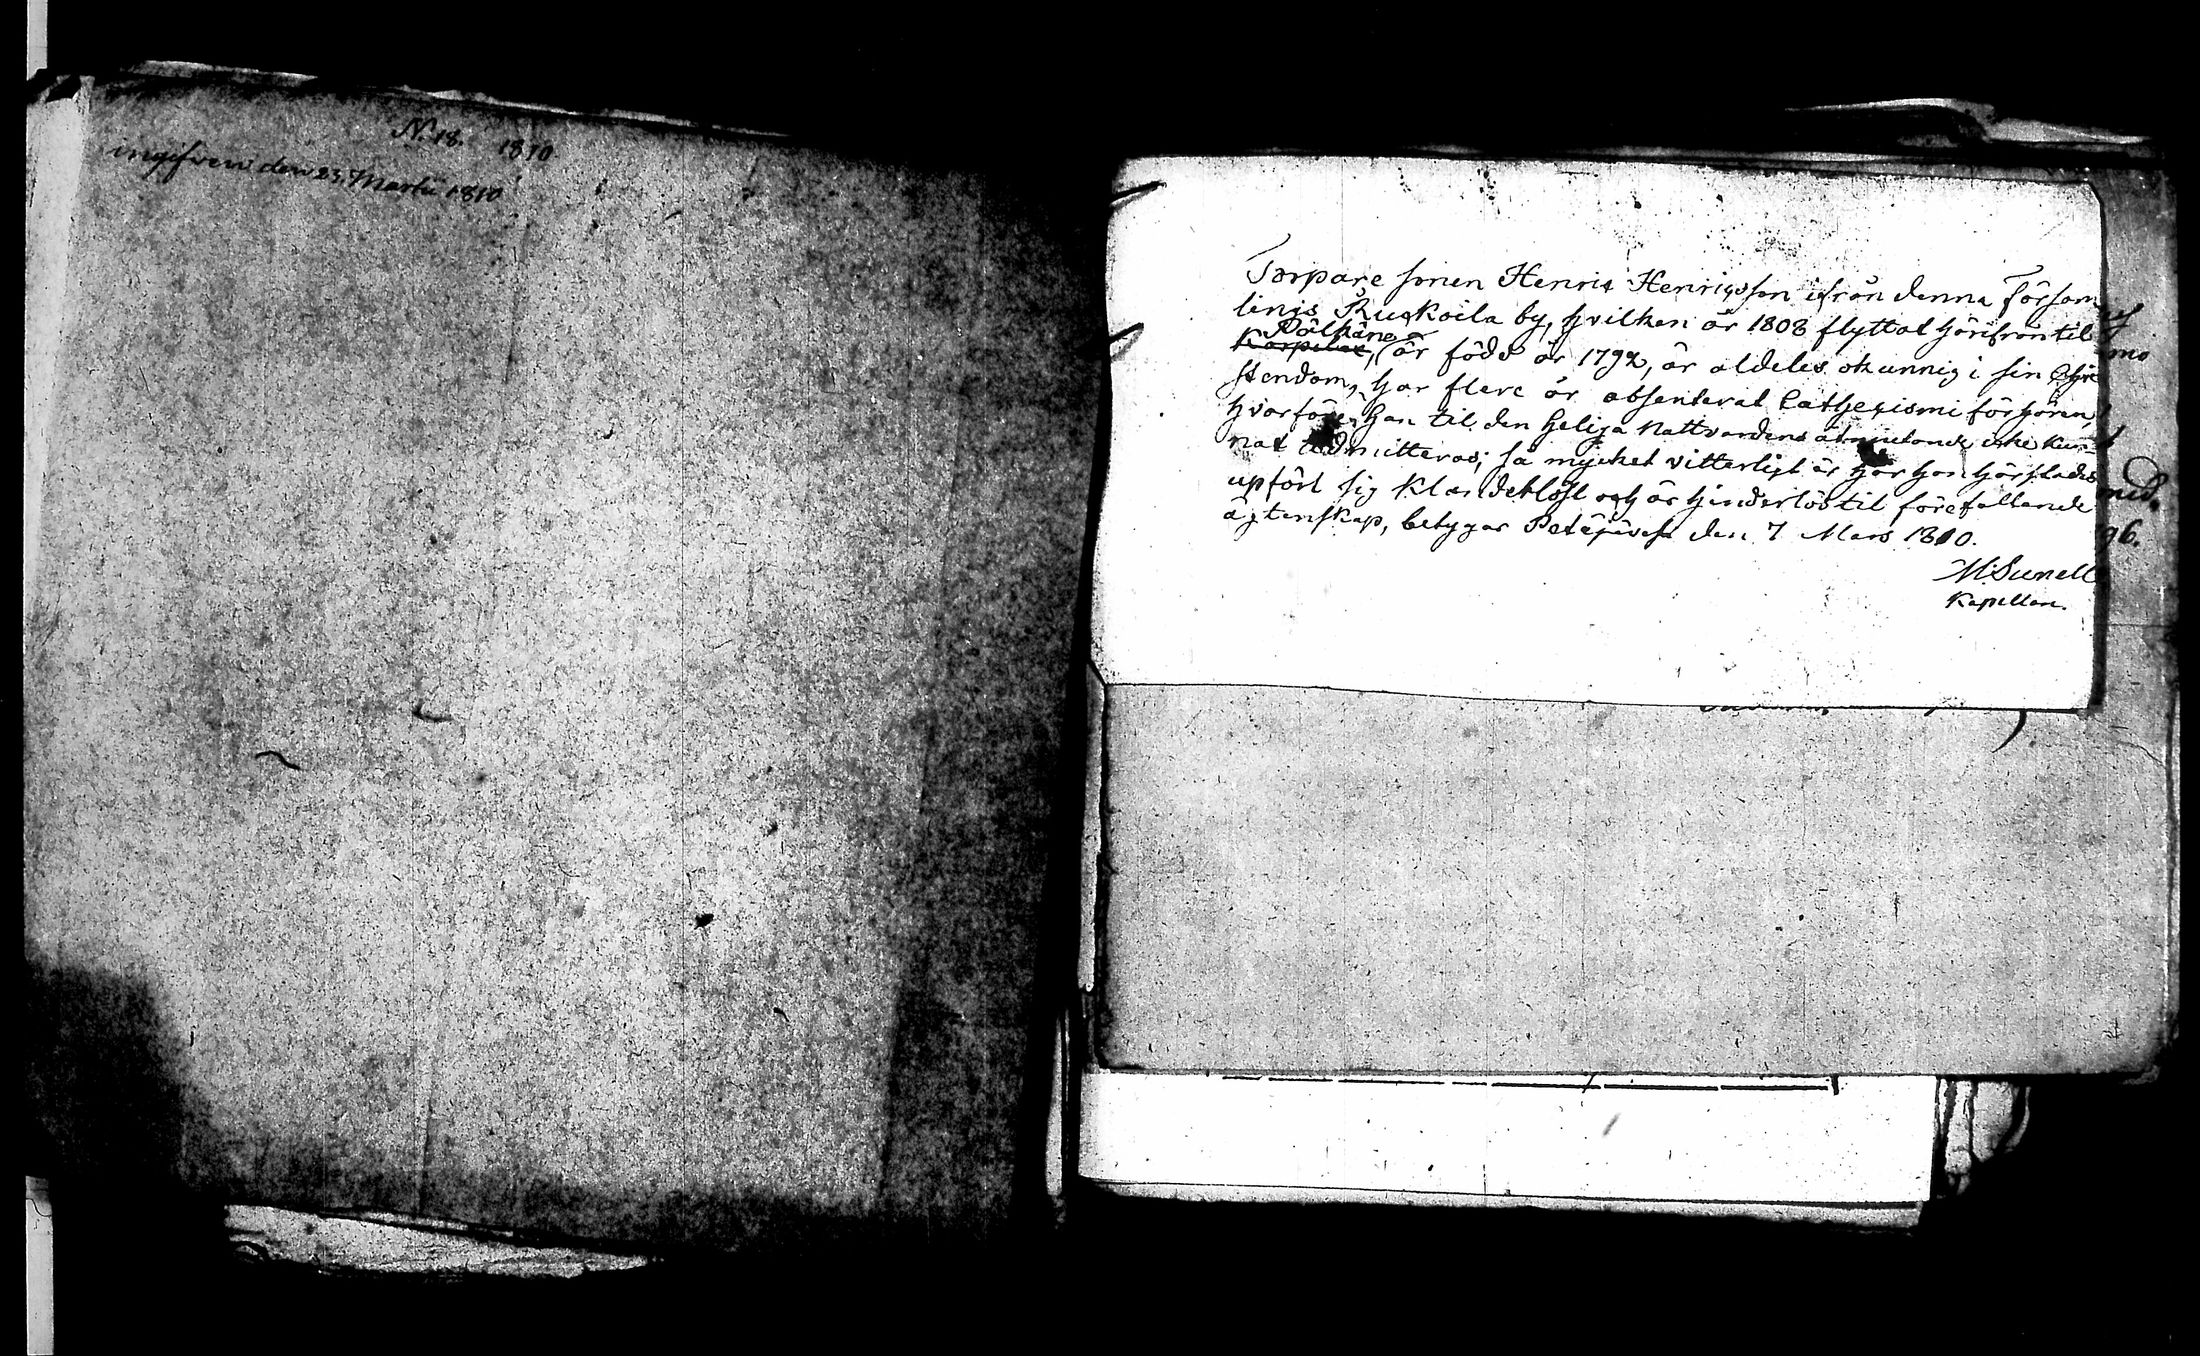 N. 18. 1810
ingifven den 23. Martii 1810
Torpare sonen Henric Henricsson ifrån denna Försam
lings Ruokoila by, hvilken år 1808 flyttat härifrån til
Pälkäne
Karpilax, är född år 1792, är aldeles okunnig i sin Chri
stendom, har flere år absenterat Cathekismi förhören,
hvarföre han til den heliga Nattvardens åtniutande icke kun-
nat admitteras; så mycket vitterligt är har han härstädes
upfört sig klanderlöst och är hinderlös til förefallande
ägtenskap, betygar Petäjävesi den 7 Mars 1810.
M. Sunell
Kapellan.
mo
96.